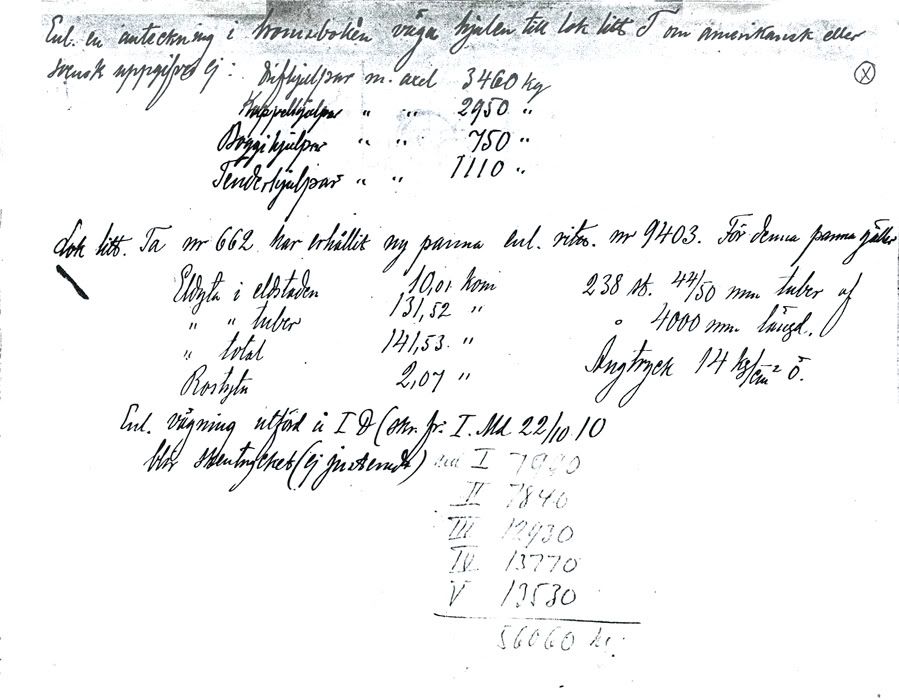 Enl. en anteckning i bromsboken väga hjulen till lok litt T om amerikansk eller
svensk uppgifves ej: Drifhjulpar m. axel 3460 kg
Koppelhjulpar " " 2950 "
Boggihjulpar " " 750 "
Tenderhjulpar " " 1110 "
X
Lok litt. Ta nr 662 har erhållit ny panna enl. ritn. nr 9403. För denna panna gäller
Eldyta i eldstaden 10,01 kvm 238 st. 44/50 mm tuber af
" " tuber 131,52 " 4000 mm längd.
" total 141,53 " Ångtryck 14 kg/cm² ö.
Rostyta 2,07 "
Enl. vägning utförd å I D (skr. fr. I. Md 22/10 10
blir skentrycket (ej justerade) I
II 7840
III 12930
IV 13770
V 13530
56060 kg.